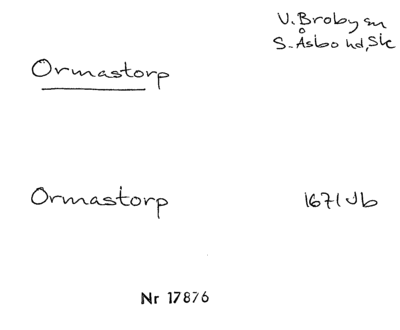 V. Broby sn
S. Åsbo hd, Sk
Ormastorp
Ormastorp
1671 Jb
Nr 17876